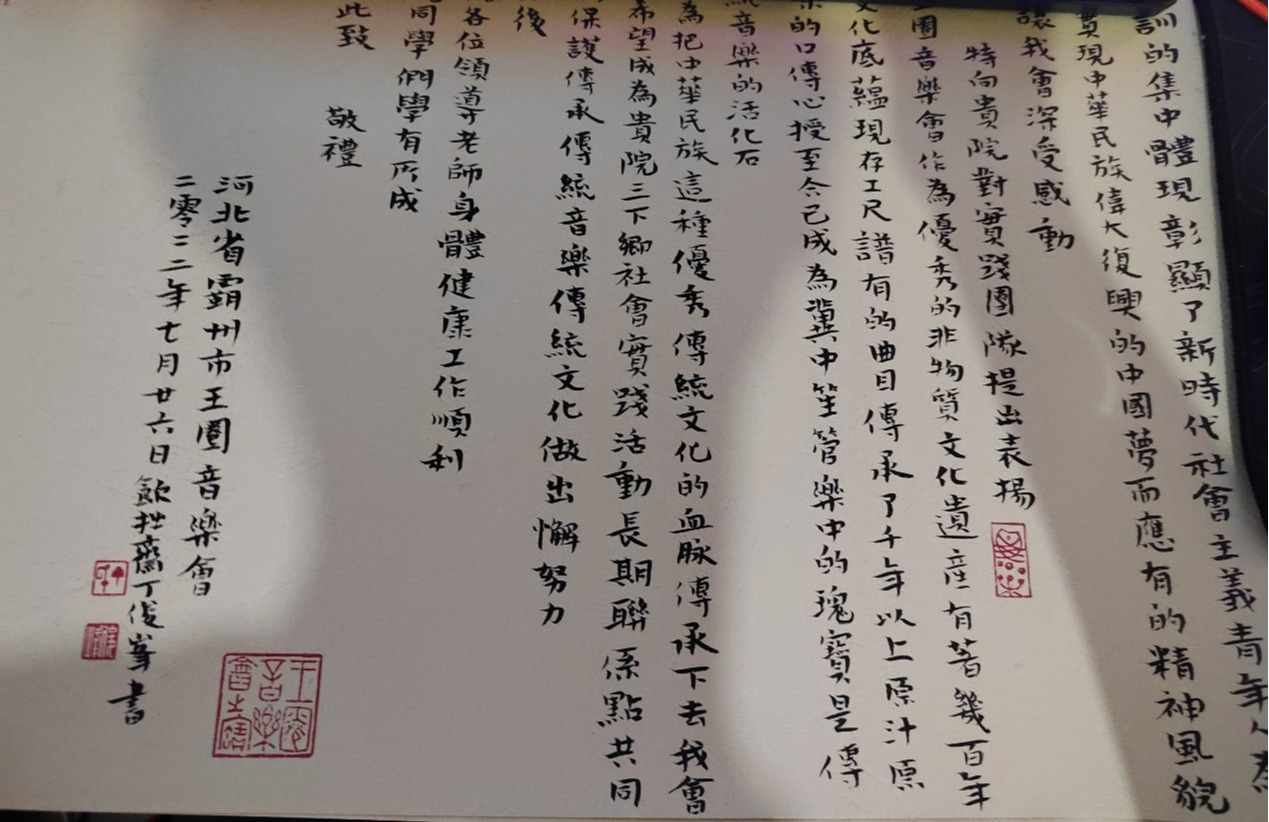 訓的集中體現彰顯了新時代社會主義青年人為
實現中華民族偉大復興的中國夢而應有的精神風貌
讓我會深受感動
特向貴院對實踐團隊提出表揚
圈音樂會作為優秀的非物質文化遺產有著幾百年
文化底蘊現存工尺譜有的曲目傳承了千年以上原汁原
的口傳心授至今已成為冀中笙管樂中的瑰寶是傳
統音樂的活化石
為把中華民族這種優秀傳統文化的血脉傳承下去我會
希望成為貴院三下鄉社會實踐活動長期聯係點共同
保護傳承傳統音樂傳統文化做出懈努力
後
各位領導老師身體健康工作順利
同學們學有所成
此致
敬禮
河北省霸州市王圈音樂會
二零二二年七月廿六日歙拙齋丁俊峯書